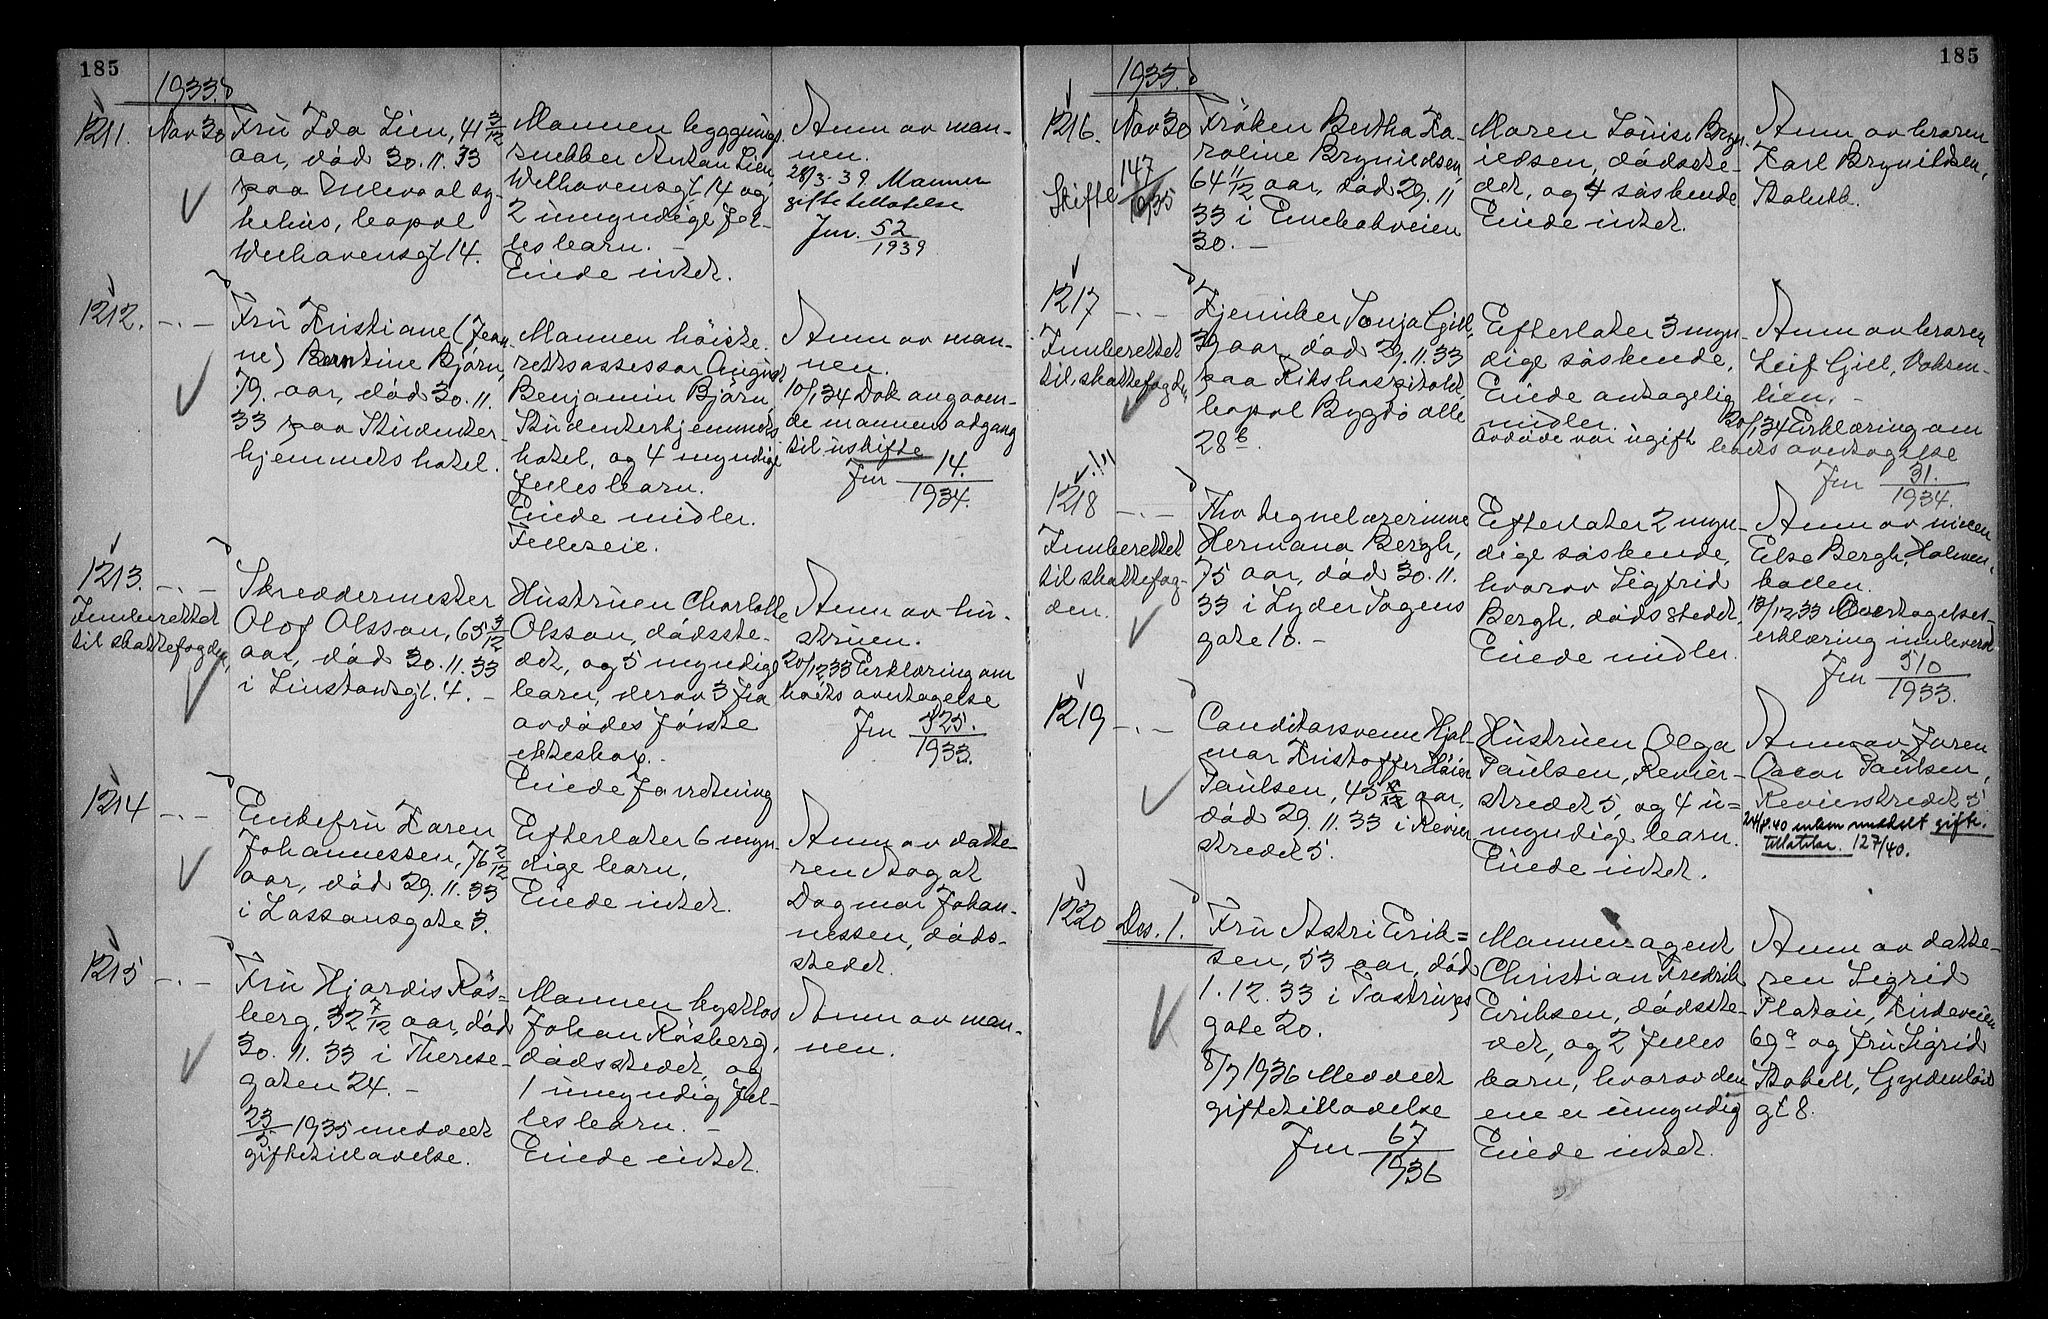 185
1933.
1211. Nov 30
Fru Ida Lien, 41 3/12
aar, død 30.11.33
paa Ullevaal sy-
kehus, bopæl
Welhavensgt 14.
Mannen byggnings-
snekker Anton Lien,
Welhavensgt 14 og
2 umyndige fel-
lesbarn. -
Eiede intet.
Anm av man-
nen.
28/3-39 Mannen
giftetillatelse
Jnr. 52/1939
1212. -.-
Fru Kristiane (Jean-
ne) Berntine Bjørn,
79 aar, død 30.11.
33 paa Studenter-
hjemmets hotel.
Mannen høieste-
rettsassessor August
Benjamin Bjørn,
Studenterhjemmets
hotel, og 4 myndige
fellesbarn.
Eiede midler.
Felleseie.
Anm av man-
nen.
10/1 34 Dok angaaen-
de mannens adgang
til uskifte
Jnr 14./1934.
1213. -.-
Innberettet
til skattefogden,
Skreddermester
Olof Olsson, 65 3/12
aar, død 30.11.33
i Linstowsgt. 4. -
Hustruen Charlotte
Olsson, dødsste-
det, og 5 myndige
barn, derav 3 fra
avdødes første
ekteskap. -
Eiede forretning
Anm av hu-
struen.
20/12 33 Erklæring om
boets overtagelse
Jnr 525./1933.
1214 -.-
Enkefru Karen
Johannessen, 76 2/12
aar, død 29.11.33
i Lassonsgate 3.
Efterlater 6 myn-
dige barn,
Eiede intet.
Anm av datte-
ren
Dagmar Johan-
nessen, døds-
stedet.
1215 -.-
Fru Hjørdis Røs=
berg, 32 7/12 aar, død
30.11.33 i Therese-
gaten 24. -
23/5 1935 meddelt
giftetilladelse.
Mannen
Johan Røsberg,
dødsstedet, og
1 umyndig fel-
lesbarn. -
Eiede intet.
Anm av man-
nen.
185
1933.
1216. Nov 30
Skifte 147/1935
Frøken Bertha Ka-
roline Brynildsen,
64 11/12 aar, død 29.11
33 i Enebakveien
30. -
Maren Louise Bryn-
ildsen, dødsste-
det, og 4 søskende
Eiede intet.
Anm av broren
Karl Brynildsen,
Stabekk.
1217 -.-
Innberettet
til skattefogden
Frk. Sonja Gjell,
aar, død 29.11.33
paa Rikshospitalet,
bopæl Bygdø alle
28 b.
Efterlater 3 myn-
dige søskende,
Eiede antagelig
midler.
Avdøde var ugift
Anm av broren
Leif Gjell,
lien. -
20/1 34 Erklæring om
boets overtagelse
Jnr 31./1934.
1218 -.-
Innberettet
til skattefog-
den.
Fhv tegnelærerinne
Hermana Bergh,
75 aar, død 30.11.
33 i Lyder Sagens
gate 10. -
Efterlater 2 myn-
dige søskende,
hvorav Sigfrid
Bergh, dødsstedet,
Eiede midler.
Anm av niesen
Else Bergh, Holmen-
kollen.
12 33 Overtagelses-
erklæring innlevert
Jnr 510/1933.
1219 -.-
Conditorsvenn Hjal-
mar Kristoffer
Paulsen, 45 aar,
død 29.11.33 i Revier
stredet 5.
Hustruen Olga
Paulsen, Revier-
stredet 5, og 4 u=
myndige barn.
Eiede intet.
Anm av faren
Oscar Paulsen,
Revierstredet 5
40 enken meddelt gifte.
tillatelse. 127/40.
1220 Des. 1.
Fru Astri Erik=
sen, 53 aar, død
1.12.33 i Tostrups
gate 20.
8/7 1936 Meddelt
giftetilladelse
Jnr 67/1936
Mannen agent
Christian Fredrik
Eriksen, dødsste-
det, og 2 felles
barn, hvorav den
ene er umyndig
Eiede intet.
Anm av datte-
ren Sigrid
Platou, Kirkeveien
69 a og fru Sigrid
Stabell, Gyldenløves
gt 8.